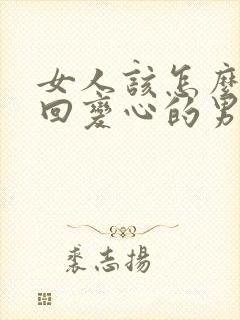 女人該怎麼
回變心的男
裘志揚